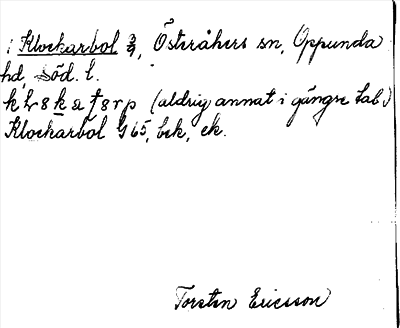 Klockarbol 3/4, Österåkers sn, Oppunda
hd, Söd. l.
(aldrig annat i gängse tal.)
Klockarbol G 65, bsk, ek.
Torsten Ericsson